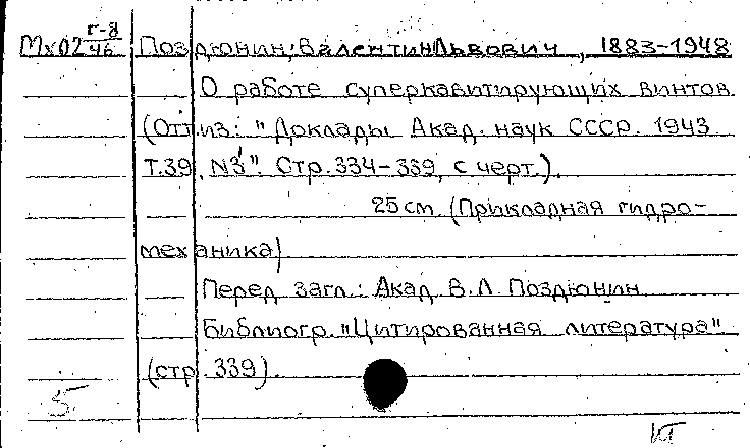 Мх02 г-8/46 Поздюнин, Валентин Львович, 1883-1948
О работе суперкавитирующих винтов
(Отт. из: "Доклады Акад. наук СССР. 1943
Т.39, N8". Стр. 334-339, с черт.).
25 см. (Прикладная гидро-
механика)
Перед загл.: Акад. В.Л. Поздюнин.
Библиогр. "Цитированная литература"
(стр. 339).
5